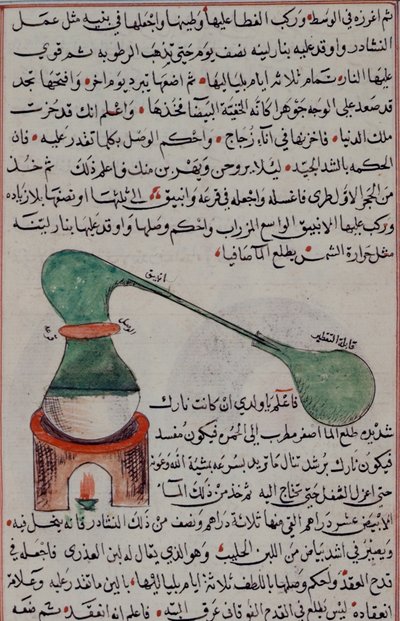 ثم اغرزه في الوسط وركب الغطا عليها وطينها واجعلها في
مثل عمل
النشادر واوقد عليه بنار لينة نصف يوم حتى تذهب الرطوبه ثم قوي
عليها النار تمام ثلاثه ايام بلياليها ثم اضعها يبرد يوم اخر وافتحها تجد
قد صعد على الوجه جوهرا كانه الفضة البيضا فخذها واعلم انك قد حزت
ملك الدنيا فاخزنها في اناء زجاج واحكم الوصل بكلما تقدر عليه فان
الحكمه بالشد الجيد ليلا يروحن ويفرين منك فاعلم ذلك ثم خذ
من الحجر الاول طري فاغسله واجعله في قرعه وانبيق الى ثلثها او نصفها بلا زياده
وركب عليها الانبيق الواسع المزراب واحكم وصلها واوقد عليها بنار لينه
مثل حرارة الشمس يطلع الما صافيا
انبيق
الوصل
قرعه
قابلة التقطير
فاعلم يا ولدي ان كانت نارك
شديده طلع الما اصفر مطرب الى الحمره فيكون مفسد
فيكون نارك برشد تنال ما تريد بسرعه بمشية الله وعونه
حتى اعزل الثفل حتى تحتاج اليه ثم خذ من ذلك الما
الابيض عشر دراهم القي منها ثلاثة دراهم ونصف من ذلك النشادر فانه ينحل فيه
ويصير في اشد بياض من اللبن الحليب وهو الذي يقال له لبن العذري فاجعله في
قدح العقد واحكم وصلها باللطف ثلاثة ايام بلياليها بالين ما تقدر عليه وعلامة
انعقاده ليس يطلع في القدح الفوقاني عرق البته فاعلم انه انعقد ثم ضعه